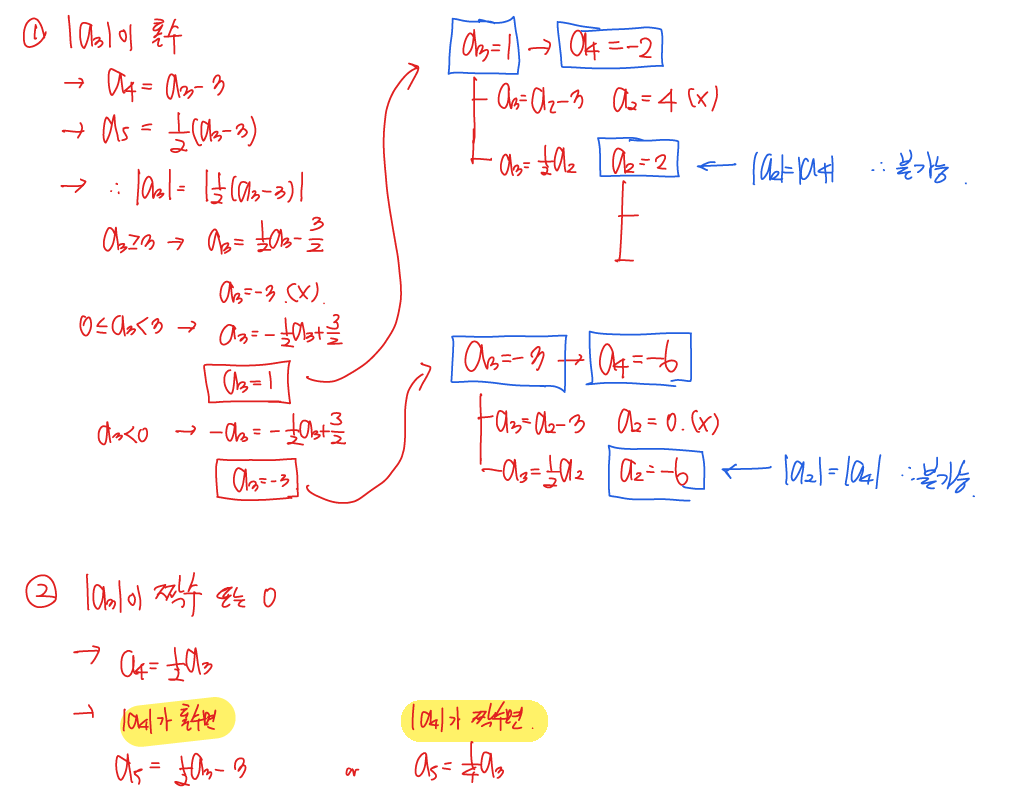 ① |a₃|이 홀수
→ a₄ = a₃ - 3
→ a₅ = 1/2(a₃-3)
→ ∴ |a₃| = |1/2(a₃-3)|
a₃≥3 → a₃ = 1/2a₃ - 3/2
a₃ = -3 .(x).
0≤a₃<3 → a₃ = -1/2a₃+3/2
a₃ = 1
a₃<0 → -a₃ = -1/2a₃+3/2
a₃ = -3
a₃=1 → a₄ = -2
a₃ = a₂ - 3 a₂ = 4 (x)
a₃ = 1/2a₂ a₂ = 2 ← |a₂|=|a₄| ∴ 불가능.
a₃ = -3 → a₄ = -6
a₃ = a₂ - 3 a₂ = 0. (x)
a₃ = 1/2a₂ a₂ = -6 ← |a₂| = |a₄| ∴ 불가능.
② |a₃|이 짝수 또는 0
→ a₄ = 1/2a₃
→ |a₄|가 홀수면 |a₄|가 짝수면.
a₅ = 1/2a₃ - 3 or a₅ = 1/4a₃